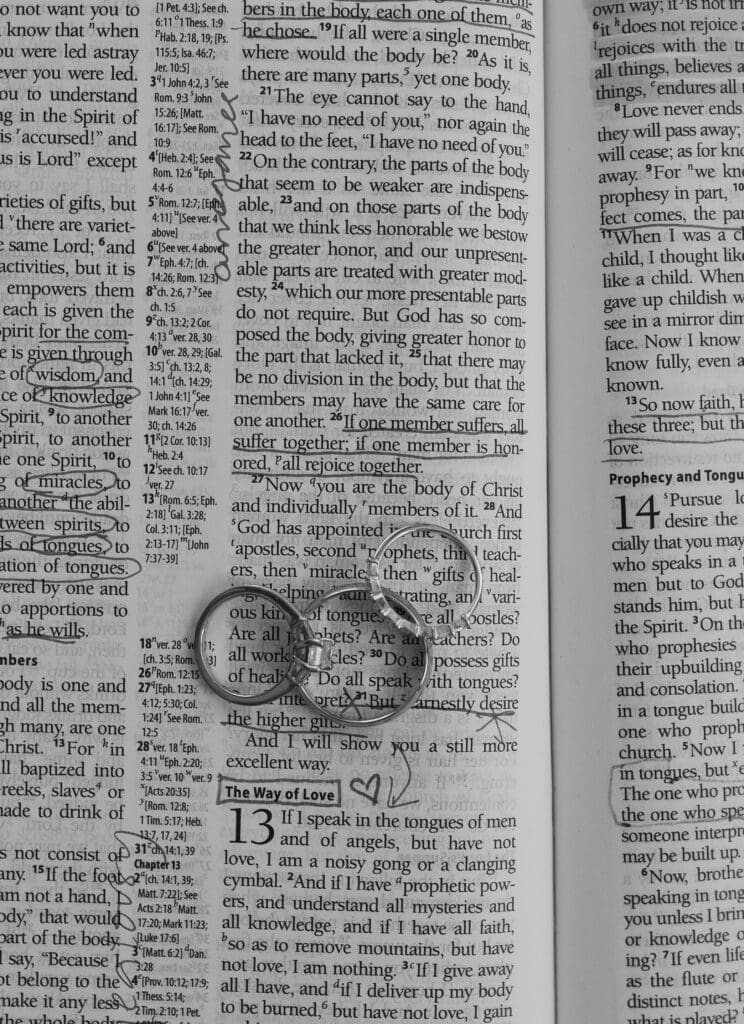 not want you to
know that ⁿwhen
ou were led astray
ever you were led.
ou to understand
ng in the Spirit of
is ʳaccursed!” and
us is Lord” except
rieties of gifts, but
ᵛthere are variet-
e same Lord; ⁶and
activities, but it is
empowers them
each is given the
Spirit for the com-
e is given through
e of wisdom, and
ce of knowledge
Spirit, ⁹to another
Spirit, to another
he one Spirit, ¹⁰to
g of miracles, to
another ᵈthe abil-
tween spirits, to
ds of tongues, to
ation of tongues.
ered by one and
o apportions to
as he wills.
mbers
body is one and
nd all the mem-
gh many, are one
Christ. ¹³For ᵏin
ll baptized into
reeks, slaves⁴ or
made to drink of
s not consist of
any. ¹⁵If the foot
am not a hand, I
ody,” that would
part of the body.
l say, “Because I
ot belong to the
make it any less
the whole body
[1 Pet. 4:3]; See ch.
6:11 ᵒ1 Thess. 1:9
ᵖHab. 2:18, 19; [Ps.
115:5; Isa. 46:7;
Jer. 10:5]
3 ᑫ1 John 4:2, 3 ʳSee
Rom. 9:3 ˢJohn
15:26; [Matt.
16:17]; See Rom.
10:9
4 ᵗ[Heb. 2:4]; See
Rom. 12:6 ᵘEph.
4:4-6
5 ᵛRom. 12:7; [Eph.
4:11] ᵘ[See ver. 4
above]
6 ᵘ[See ver. 4 above]
7 ʷEph. 4:7; [ch.
14:26; Rom. 12:3]
8 ˣch. 2:6, 7 ʸSee
ch. 1:5
9 ᶻch. 13:2; 2 Cor.
4:13 ᵃver. 28, 30
10 ᵇver. 28, 29; [Gal.
3:5] ᶜch. 13:2, 8;
14:1 ᵈ[ch. 14:29;
1 John 4:1] ᵉSee
Mark 16:17 ᶠver.
30; ch. 14:26
11 ᵍ[2 Cor. 10:13]
ʰHeb. 2:4
12 ⁱSee ch. 10:17
ʲver. 27
13 ᵏ[Rom. 6:5; Eph.
2:18] ˡGal. 3:28;
Col. 3:11; [Eph.
2:13-17] ᵐ[John
7:37-39]
18 ⁿver. 28
[ch. 3:5; Rom.
26 ᵖRom. 12:15
27 ᑫ[Eph. 1:23;
4:12; 5:30; Col.
1:24] ʳSee Rom.
12:5
28 ˢver. 18 ᵗEph.
4:11 ᵘEph. 2:20;
3:5 ᵛver. 10 ʷver. 9
ˣ[Acts 20:35]
ʸ[Rom. 12:8;
1 Tim. 5:17; Heb.
13:7, 17, 24]
31 ᶻch. 14:1, 39
Chapter 13
2 ᵃ[ch. 14:1, 39;
Matt. 7:22]; See
Acts 2:18 ᵇMatt.
17:20; Mark 11:23;
[Luke 17:6]
3 ᶜ[Matt. 6:2] ᵈDan.
3:28
4 ᵉ[Prov. 10:12; 17:9;
1 Thess. 5:14;
2 Tim. 2:10; 1 Pet.
bers in the body, each one of them, ᵒas
he chose. ¹⁹If all were a single member,
where would the body be? ²⁰As it is,
there are many parts,⁵ yet one body.
²¹The eye cannot say to the hand,
“I have no need of you,” nor again the
head to the feet, “I have no need of you.”
²²On the contrary, the parts of the body
that seem to be weaker are indispens-
able, ²³and on those parts of the body
that we think less honorable we bestow
the greater honor, and our unpresent-
able parts are treated with greater mod-
esty, ²⁴which our more presentable parts
do not require. But God has so com-
posed the body, giving greater honor to
the part that lacked it, ²⁵that there may
be no division in the body, but that the
members may have the same care for
one another. ²⁶If one member suffers, all
suffer together; if one member is hon-
ored, ᵖall rejoice together.
²⁷Now ᑫyou are the body of Christ
and individually ʳmembers of it. ²⁸And
ˢGod has appointed in the church first
ᵗapostles, second ᵘprophets, third teach-
ers, then ᵛmiracles, then ʷgifts of heal-
ing, helping, administrating, and ᵛvari-
ous kinds of tongues. Are all apostles?
Are all prophets? Are all teachers? Do
all work miracles? ³⁰Do all possess gifts
of healing? Do all speak with tongues?
interpret? ³¹But ᶻearnestly desire
the higher gifts.
And I will show you a still more
excellent way.
The Way of Love
13 If I speak in the tongues of men
and of angels, but have not
love, I am a noisy gong or a clanging
cymbal. ²And if I have ᵃprophetic pow-
ers, and understand all mysteries and
all knowledge, and if I have all faith,
ᵇso as to remove mountains, but have
not love, I am nothing. ³ᶜIf I give away
all I have, and ᵈif I deliver up my body
to be burned,⁶ but have not love, I gain
own way; it is not irri
⁶it ᵏdoes not rejoice a
ˡrejoices with the tr
all things, believes a
things, ᵉendures all t
⁸Love never ends.
they will pass away;
will cease; as for kno
away. ⁹For ⁿwe kno
prophesy in part, ¹⁰
fect comes, the par
¹¹When I was a ch
child, I thought like
like a child. When
gave up childish w
see in a mirror dim
face. Now I know
know fully, even a
known.
¹³So now faith, h
these three; but th
love.
Prophecy and Tongu
14 ˢPursue lo
desire the
cially that you may
who speaks in a t
men but to God
stands him, but h
the Spirit. ³On the
who prophesies
their upbuilding
and consolation.
in a tongue build
one who proph
church. ⁵Now I
in tongues, but ˣe
The one who pro
the one who spe
someone interpr
may be built up.
⁶Now, brothe
speaking in tong
you unless I brin
or knowledge o
ing? ⁷If even life
as the flute or
distinct notes, h
what is played?